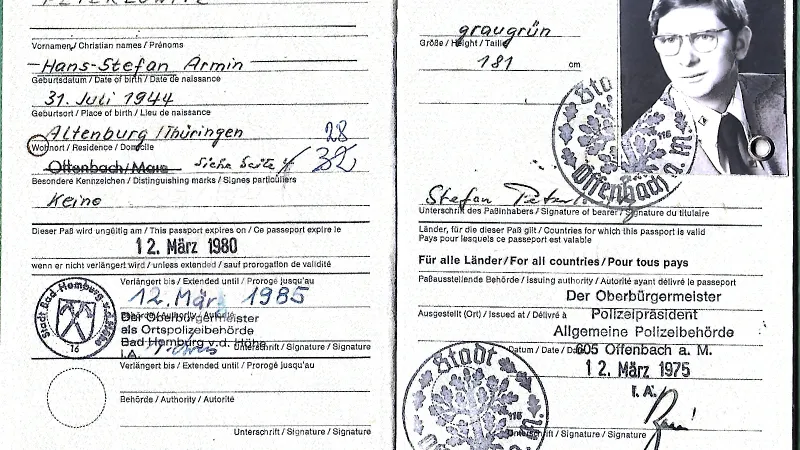 PETERLOWITZ
Vornamen / Christian names / Prénoms
Hans-Stefan Armin
Geburtsdatum / Date of birth / Date de naissance
31. Juli 1944
Geburtsort / Place of birth / Lieu de naissance
Altenburg / Thüringen
28
Wohnort / Residence / Domicile
Offenbach / Main siehe Seite 4 32
Besondere Kennzeichen / Distinguishing marks / Signes particuliers
Keine
Dieser Paß wird ungültig am / This passport expires on / Ce passeport expire le
12. März 1980
wenn er nicht verlängert wird / unless extended / sauf prorogation de validité
Verlängert bis / Extended until / Prorogé jusqu'au
12. März 1985
Behörde / Authority / Autorité
Der Oberbürgermeister
als Ortspolizeibehörde
Bad Homburg v.d. Höhe
i.A.
Unterschrift / Signature / Signature
Stadt Bad Homburg v.d. Höhe
16
Verlängert bis / Extended until / Prorogé jusqu'au
Behörde / Authority / Autorité
Unterschrift / Signature / Signature
graugrün
Größe / Height / Taille
181 cm
Stadt Offenbach a. M.
116
Stefan
Unterschrift des Paßinhabers / Signature of bearer / Signature du titulaire
Länder, für die dieser Paß gilt / Countries for which this passport is valid
Pays pour lesquels ce passeport est valable
Für alle Länder / For all countries / Pour tous pays
Paßausstellende Behörde / Issuing authority / Autorité ayant délivré le passeport
Der Oberbürgermeister
Ausgestellt (Ort) / Issued at / Délivré à
Polizeipräsident
Allgemeine Polizeibehörde
Datum / Date / Date
605 Offenbach a. M.
12. März 1975
I. A.
Unterschrift / Signature / Signature
Stadt
116